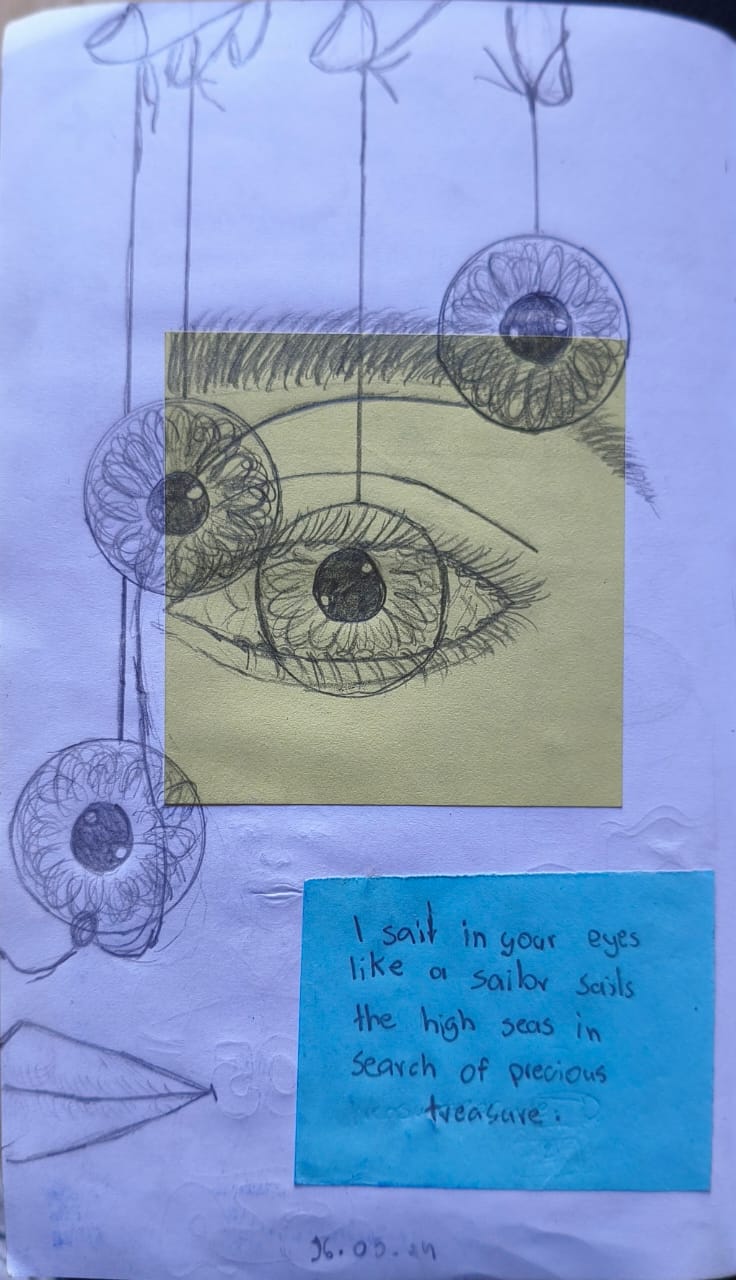 I sail in your eyes
like a sailor sails
the high seas in
search of precious
treasure.